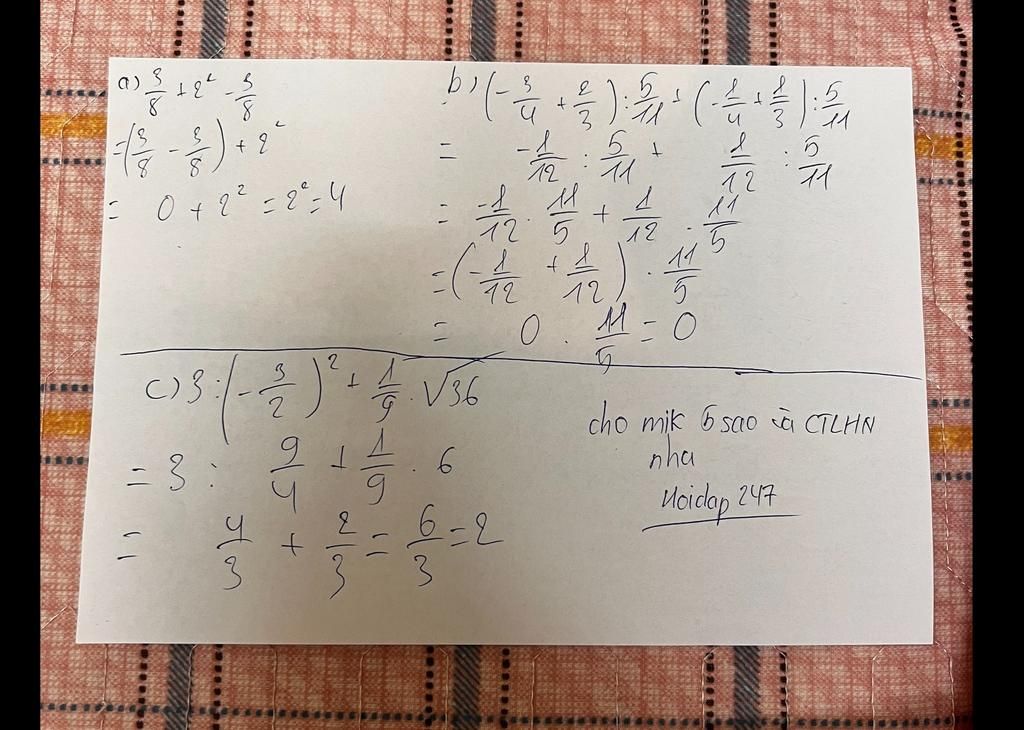 a) 3/8 + 2² - 3/8
= (3/8 - 3/8) + 2²
= 0 + 2² = 2² = 4
b) (-3/4 + 2/3) : 5/11 + (-1/4 + 1/3) : 5/11
= -1/12 : 5/11 + 1/12 : 5/11
= -1/12 . 11/5 + 1/12 . 11/5
= (-1/12 + 1/12) . 11/5
= 0 . 11/5 = 0
c) 3 : (-3/2)² + 1/9 . √36
= 3 : 9/4 + 1/9 . 6
= 4/3 + 2/3 = 6/3 = 2
cho mik 5 sao và CTLHN
nha
Hoidap 247